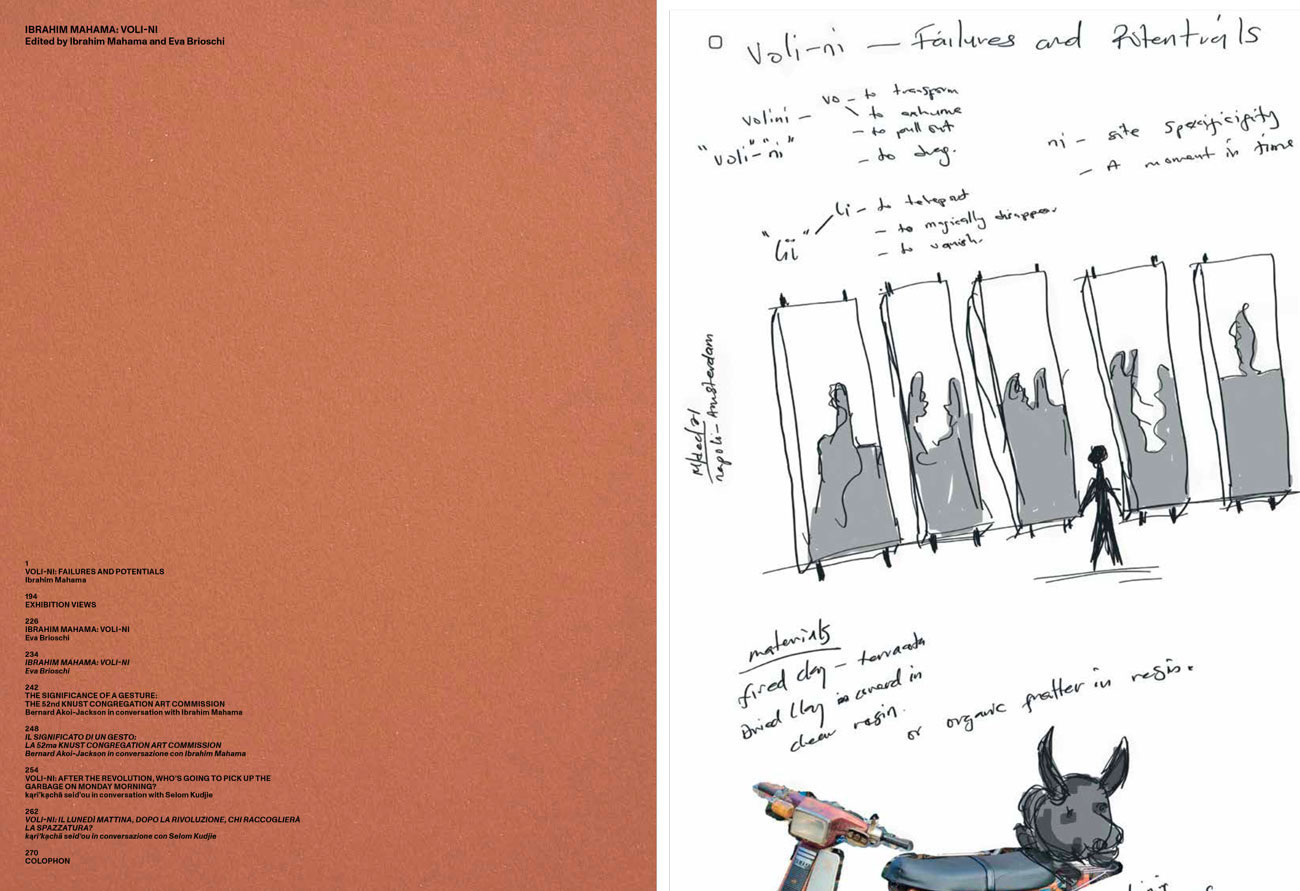 IBRAHIM MAHAMA: VOLI-NI
Edited by Ibrahim Mahama and Eva Brioschi
1
VOLI-NI: FAILURES AND POTENTIALS
Ibrahim Mahama
194
EXHIBITION VIEWS
226
IBRAHIM MAHAMA: VOLI-NI
Eva Brioschi
234
IBRAHIM MAHAMA: VOLI-NI
Eva Brioschi
242
THE SIGNIFICANCE OF A GESTURE:
THE 52nd KNUST CONGREGATION ART COMMISSION
Bernard Akoi-Jackson in conversation with Ibrahim Mahama
248
IL SIGNIFICATO DI UN GESTO:
LA 52ma KNUST CONGREGATION ART COMMISSION
Bernard Akoi-Jackson in conversazione con Ibrahim Mahama
254
VOLI-NI: AFTER THE REVOLUTION, WHO'S GOING TO PICK UP THE
GARBAGE ON MONDAY MORNING?
kąrî'kạchä seid'ou in conversation with Selom Kudjie
262
VOLI-NI: IL LUNEDÌ MATTINA, DOPO LA RIVOLUZIONE, CHI RACCOGLIERÀ
LA SPAZZATURA?
kąrî'kạchä seid'ou in conversazione con Selom Kudjie
270
COLOPHON
Voli-ni — Failures and Potentials
volini — vo — to transform
— to exhume
"voli-ni"
— to pull out
— to drag.
ni — site specificity
— A moment in time
li — to teleport
— to magically disappear
"lii"
— to vanish.
napoli - Amsterdam
materials
fired clay — terracotta
Dried clay covered in
clear resin.
or organic matter in resin.